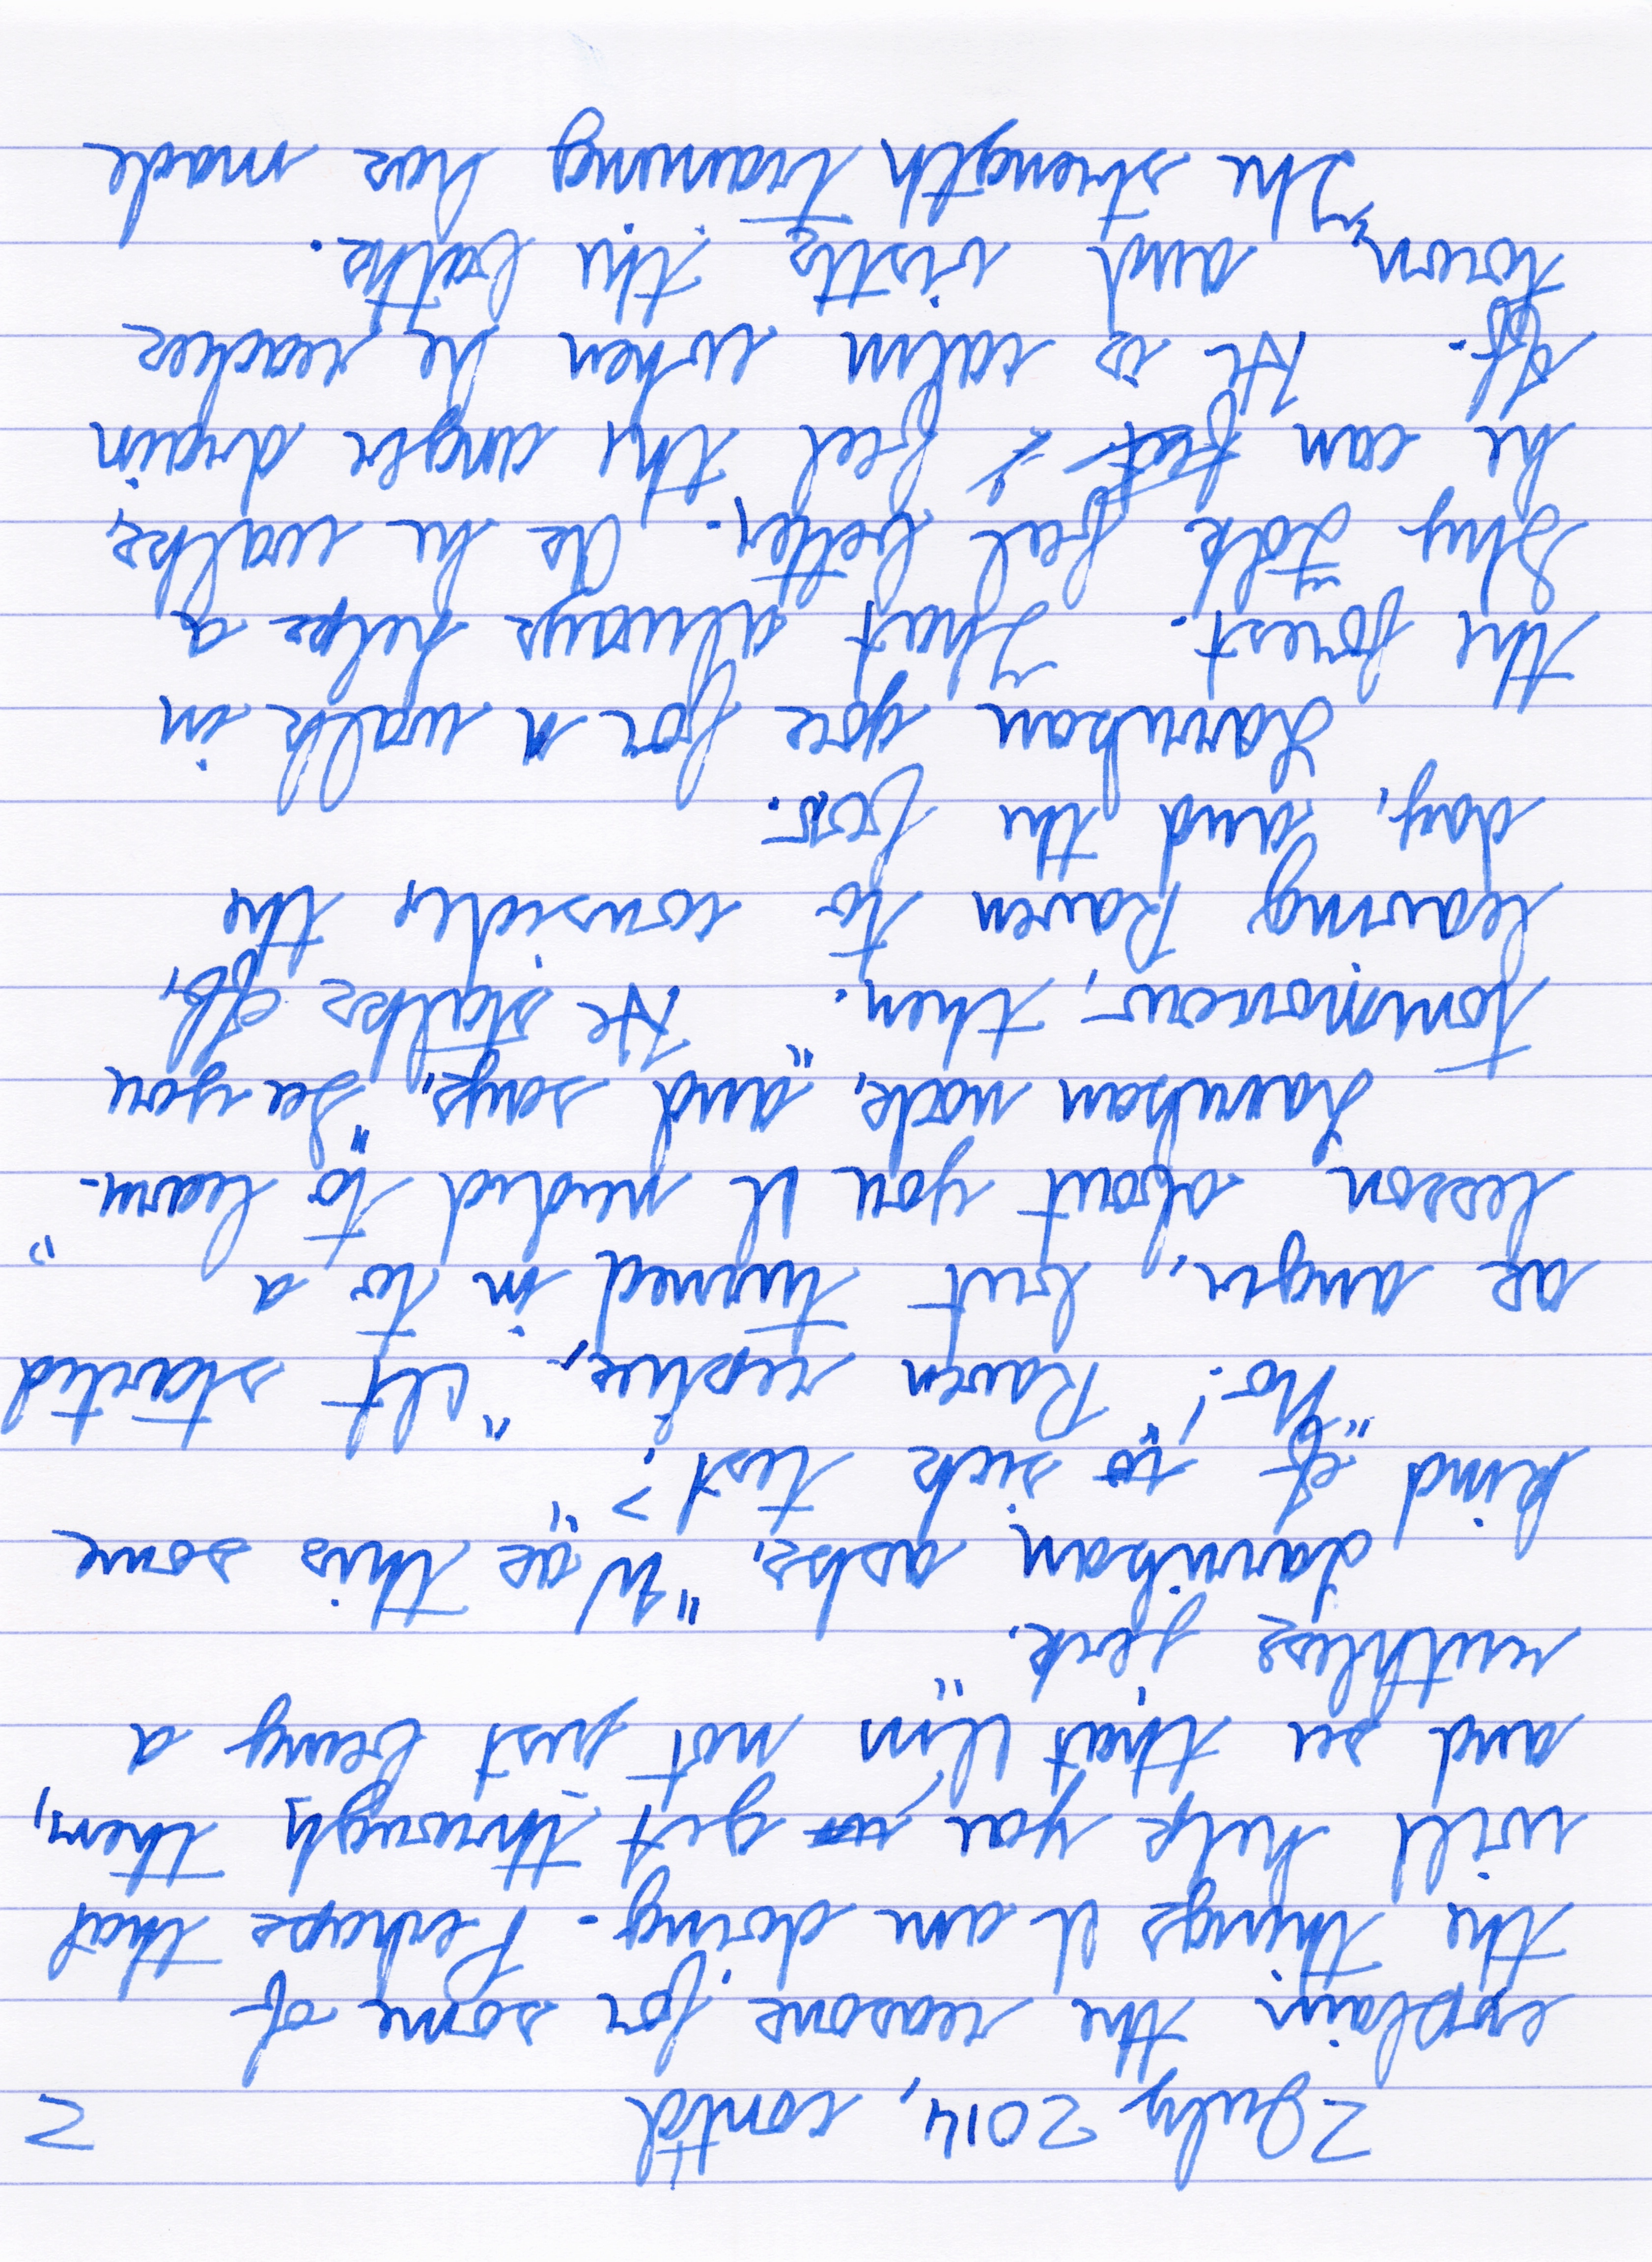 2 July 2014, cont'd 2
explain the reasons for some of
the things I am doing. Perhaps that
will help you get through them,
and see that I'm not just being a
ruthless jerk."
Larukan asks, "Was this some
kind of sick test?"
"No!" Raven replies, "It started
as anger, but turned in to a
lesson about you I needed to learn."
Larukan nods, and says, "See you
tommorow, then." He stalks off,
leaving Raven to consider the
day, and the boy.
Larukan goes for a walk in
the forest. That always helps a
Shy Folk feel better. As he walks,
he can feel the anger drain
off. He is calm when he reaches
town, and visits the baths.
The strength training has made